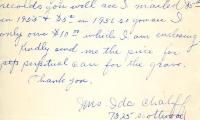 records you will see I mailed $5
in 1950 & $5 in 1951 so you see I
only owe $10.00 which I am enclosing
kindly send me the price for
perpetual care for the grave.
Thank you.
Mrs. Ida Chaliff
7325